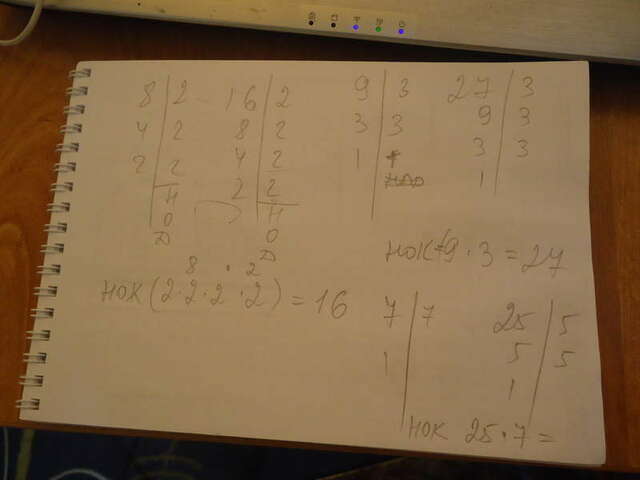 8 | 2
4 | 2
2 | 2
Н
О
Д
16 | 2
8 | 2
4 | 2
2 | 2
Н
О
Д
8 · 2
НОК (2·2·2·2) = 16
9 | 3
3 | 3
1
27 | 3
9 | 3
3 | 3
1
НОК=9·3=27
7 | 7
1
25 | 5
5 | 5
1
НОК 25·7=